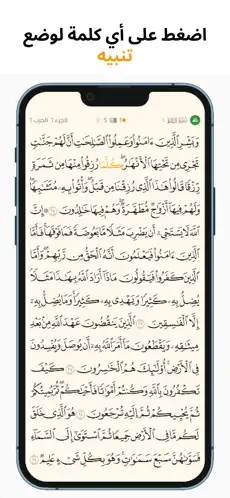 اضغط على أي كلمة لوضع
تنبيه
الجزء 1 الحزب 1
5
وَبَشِّرِ الَّذِينَ ءَامَنُوا وَعَمِلُوا الصَّٰلِحَٰتِ أَنَّ لَهُمْ جَنَّٰتٍ
تَجْرِي مِن تَحْتِهَا الْأَنْهَٰرُ ۖ كُلَّمَا رُزِقُوا مِنْهَا مِن ثَمَرَةٍ
رِّزْقًا ۙ قَالُوا هَٰذَا الَّذِي رُزِقْنَا مِن قَبْلُ ۖ وَأُتُوا بِهِ مُتَشَٰبِهًا ۖ
وَلَهُمْ فِيهَا أَزْوَٰجٌ مُّطَهَّرَةٌ ۖ وَهُمْ فِيهَا خَٰلِدُونَ ۝ إِنَّ
اللَّهَ لَا يَسْتَحْيِۦ أَن يَضْرِبَ مَثَلًا مَّا بَعُوضَةً فَمَا فَوْقَهَا ۚ فَأَمَّا
الَّذِينَ ءَامَنُوا فَيَعْلَمُونَ أَنَّهُ الْحَقُّ مِن رَّبِّهِمْ ۖ وَأَمَّا
الَّذِينَ كَفَرُوا فَيَقُولُونَ مَاذَا أَرَادَ اللَّهُ بِهَٰذَا مَثَلًا ۘ
يُضِلُّ بِهِ كَثِيرًا وَيَهْدِي بِهِ كَثِيرًا ۚ وَمَا يُضِلُّ بِهِ
إِلَّا الْفَٰسِقِينَ ۝ الَّذِينَ يَنقُضُونَ عَهْدَ اللَّهِ مِن بَعْدِ
مِيثَٰقِهِ وَيَقْطَعُونَ مَا أَمَرَ اللَّهُ بِهِ أَن يُوصَلَ وَيُفْسِدُونَ
فِي الْأَرْضِ ۚ أُولَٰئِكَ هُمُ الْخَٰسِرُونَ ۝ كَيْفَ
تَكْفُرُونَ بِاللَّهِ وَكُنتُمْ أَمْوَٰتًا فَأَحْيَٰكُمْ ۖ ثُمَّ يُمِيتُكُمْ
ثُمَّ يُحْيِيكُمْ ثُمَّ إِلَيْهِ تُرْجَعُونَ ۝ هُوَ الَّذِي خَلَقَ
لَكُم مَّا فِي الْأَرْضِ جَمِيعًا ثُمَّ اسْتَوَىٰ إِلَى السَّمَاءِ
فَسَوَّىٰهُنَّ سَبْعَ سَمَٰوَٰتٍ ۚ وَهُوَ بِكُلِّ شَيْءٍ عَلِيمٌ ۝